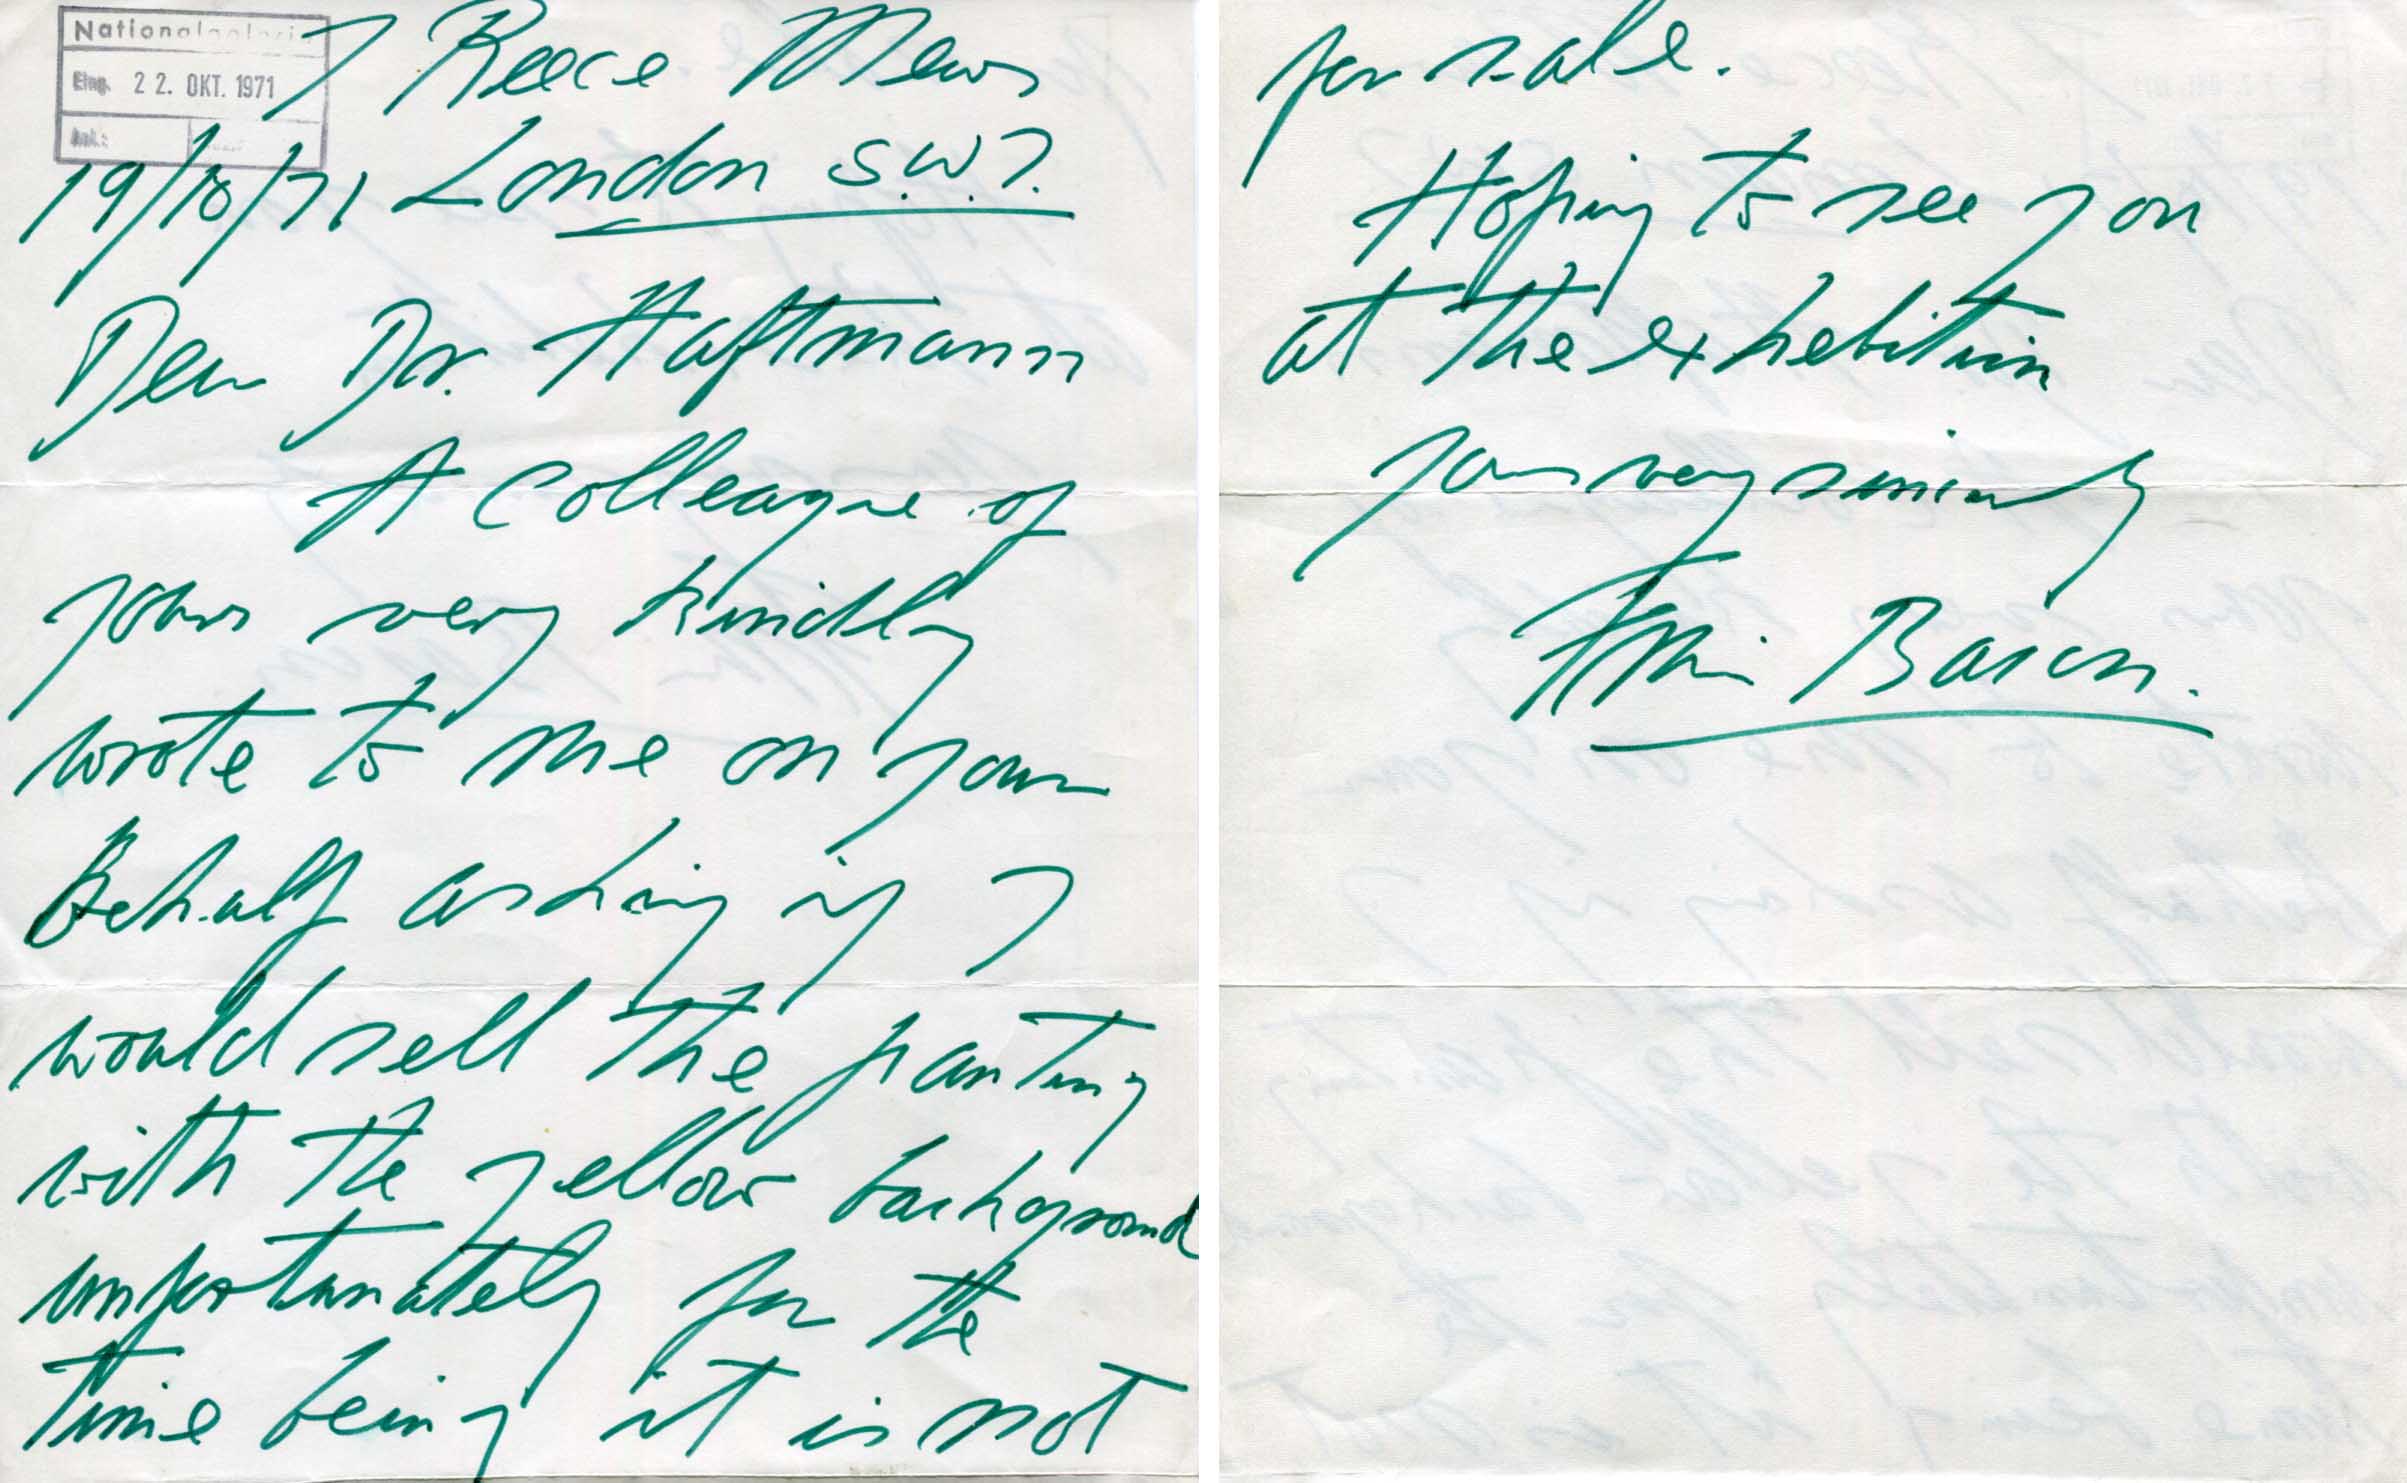 Nationalgalerie
Eing. 22. OKT. 1971
Anl.:
7 Reece Mews
19/10/71 London S.W.7.
Dear Dr. Haftmann
A colleague of
yours very kindly
wrote to me on your
Behalf asking if I
would sell the painting
with the yellow background
unfortunately for the
time being it is not
for sale.
Hoping to see you
at the exhebition
yours very sincerely
Francis Bacon.